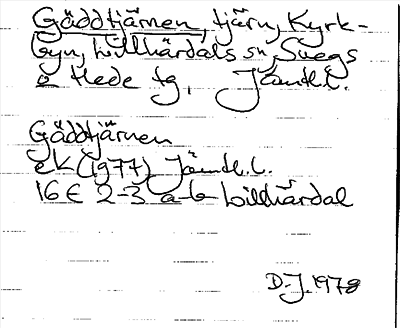 Gäddtjärnen, tjärn, Kyrk-
byn, Lillhärdals sn, Svegs
o Hede tg, Jämtl.l.
Gäddtjärnen
ek (1977) Jämtl.l.
16E 2-3 a-b Lillhärdal
D-J. 1978